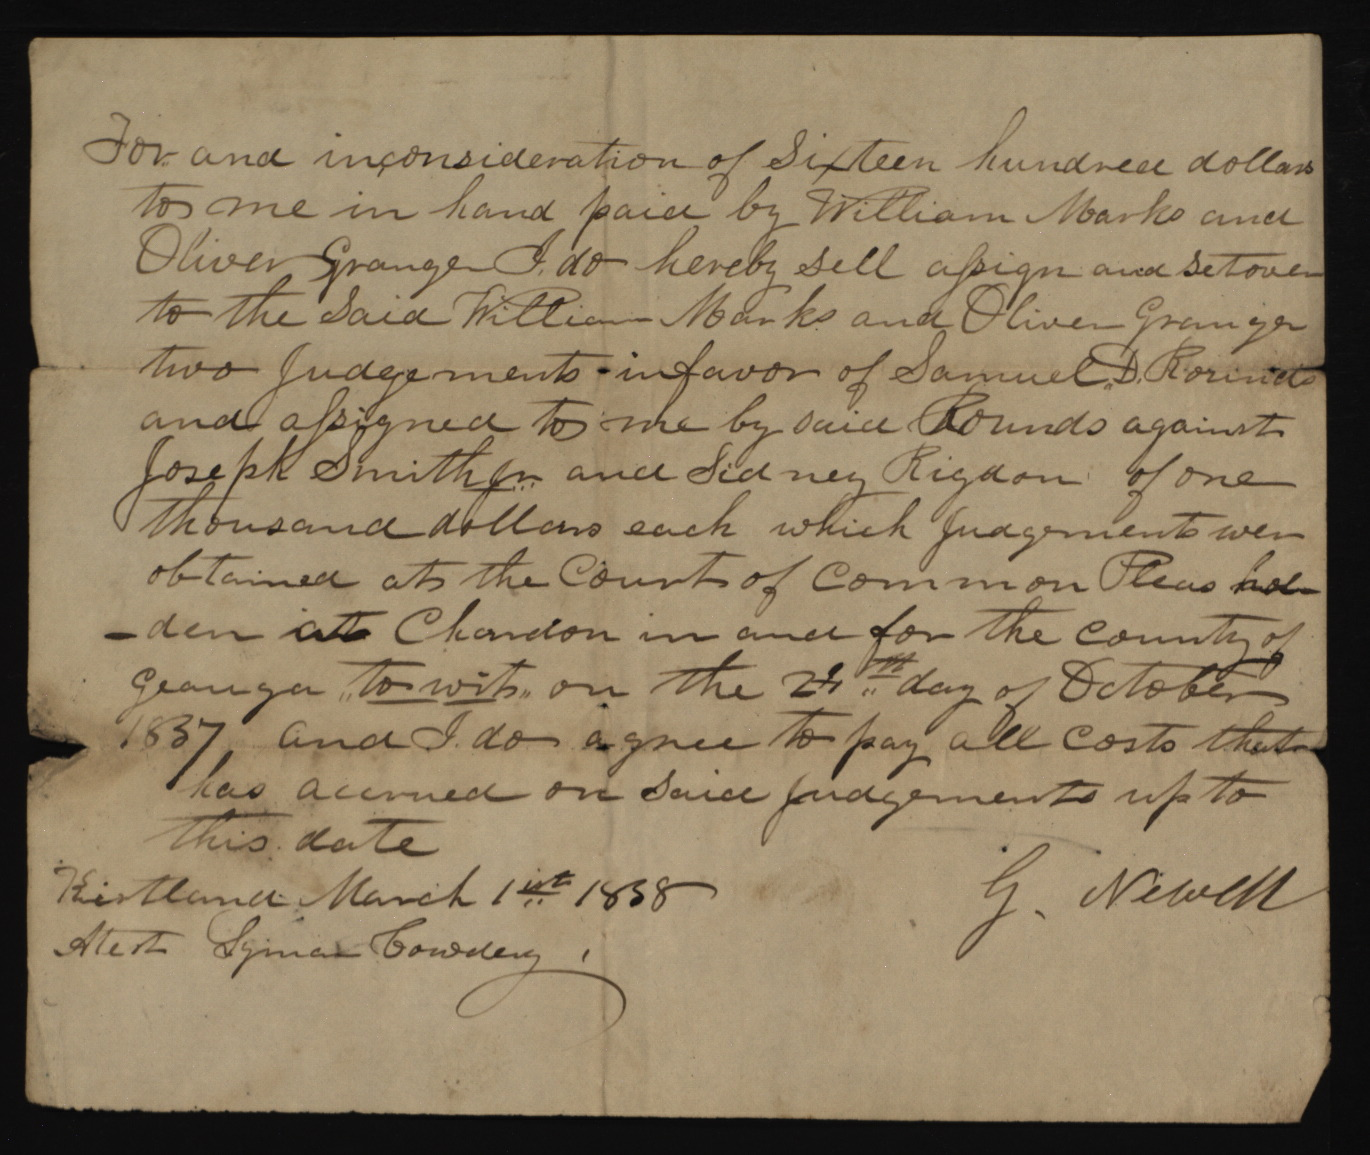 For and inconsideration of Sixteen hundred dollars
to me in hand paid by William Marks and
Oliver Granger I. do hereby sell assign and setover
to the Said William Marks and Oliver Granger
two Judgements infavor of Samuel D. Rounds
and assigned to me by said Rounds against
Joseph Smith Jr. and Sidney Rigdon of one
thousand dollars each which Judgements wer
obtained at the Court of Common Pleas hol-
-den at Chardon in and for the county of
Geauga "to wit" on the th day of October
1837 and I. do agree to pay all costs that
has accrued on said Judgements up to
this date
Kirtland March 1st 1838 G. Newell
Atest Lyman Cowdery